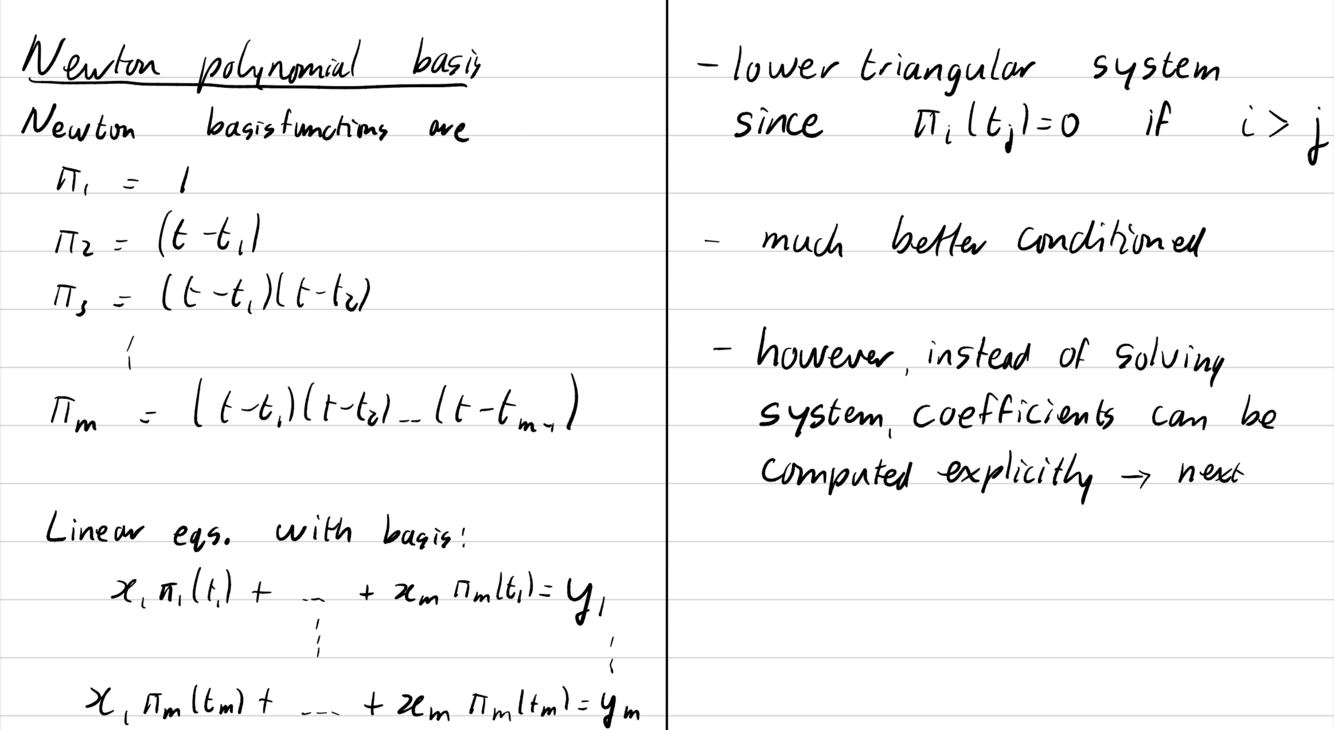 Newton polynomial basis
Newton basisfunctions are
π₁ = 1
π₂ = (t-t₁)
π₃ = (t-t₁)(t-t₂)
⋮
πₘ = (t-t₁)(t-t₂)...(t-tₘ₋₁)
Linear eqs. with basis:
x₁ π₁(t₁) + ... + xₘ πₘ(t₁) = y₁
⋮ ⋮
x₁ πₘ(tₘ) + ... + xₘ πₘ(tₘ) = yₘ
- lower triangular system
since πᵢ(tⱼ)=0 if i > j
- much better conditioned
- however, instead of solving
system, coefficients can be
computed explicitly → next